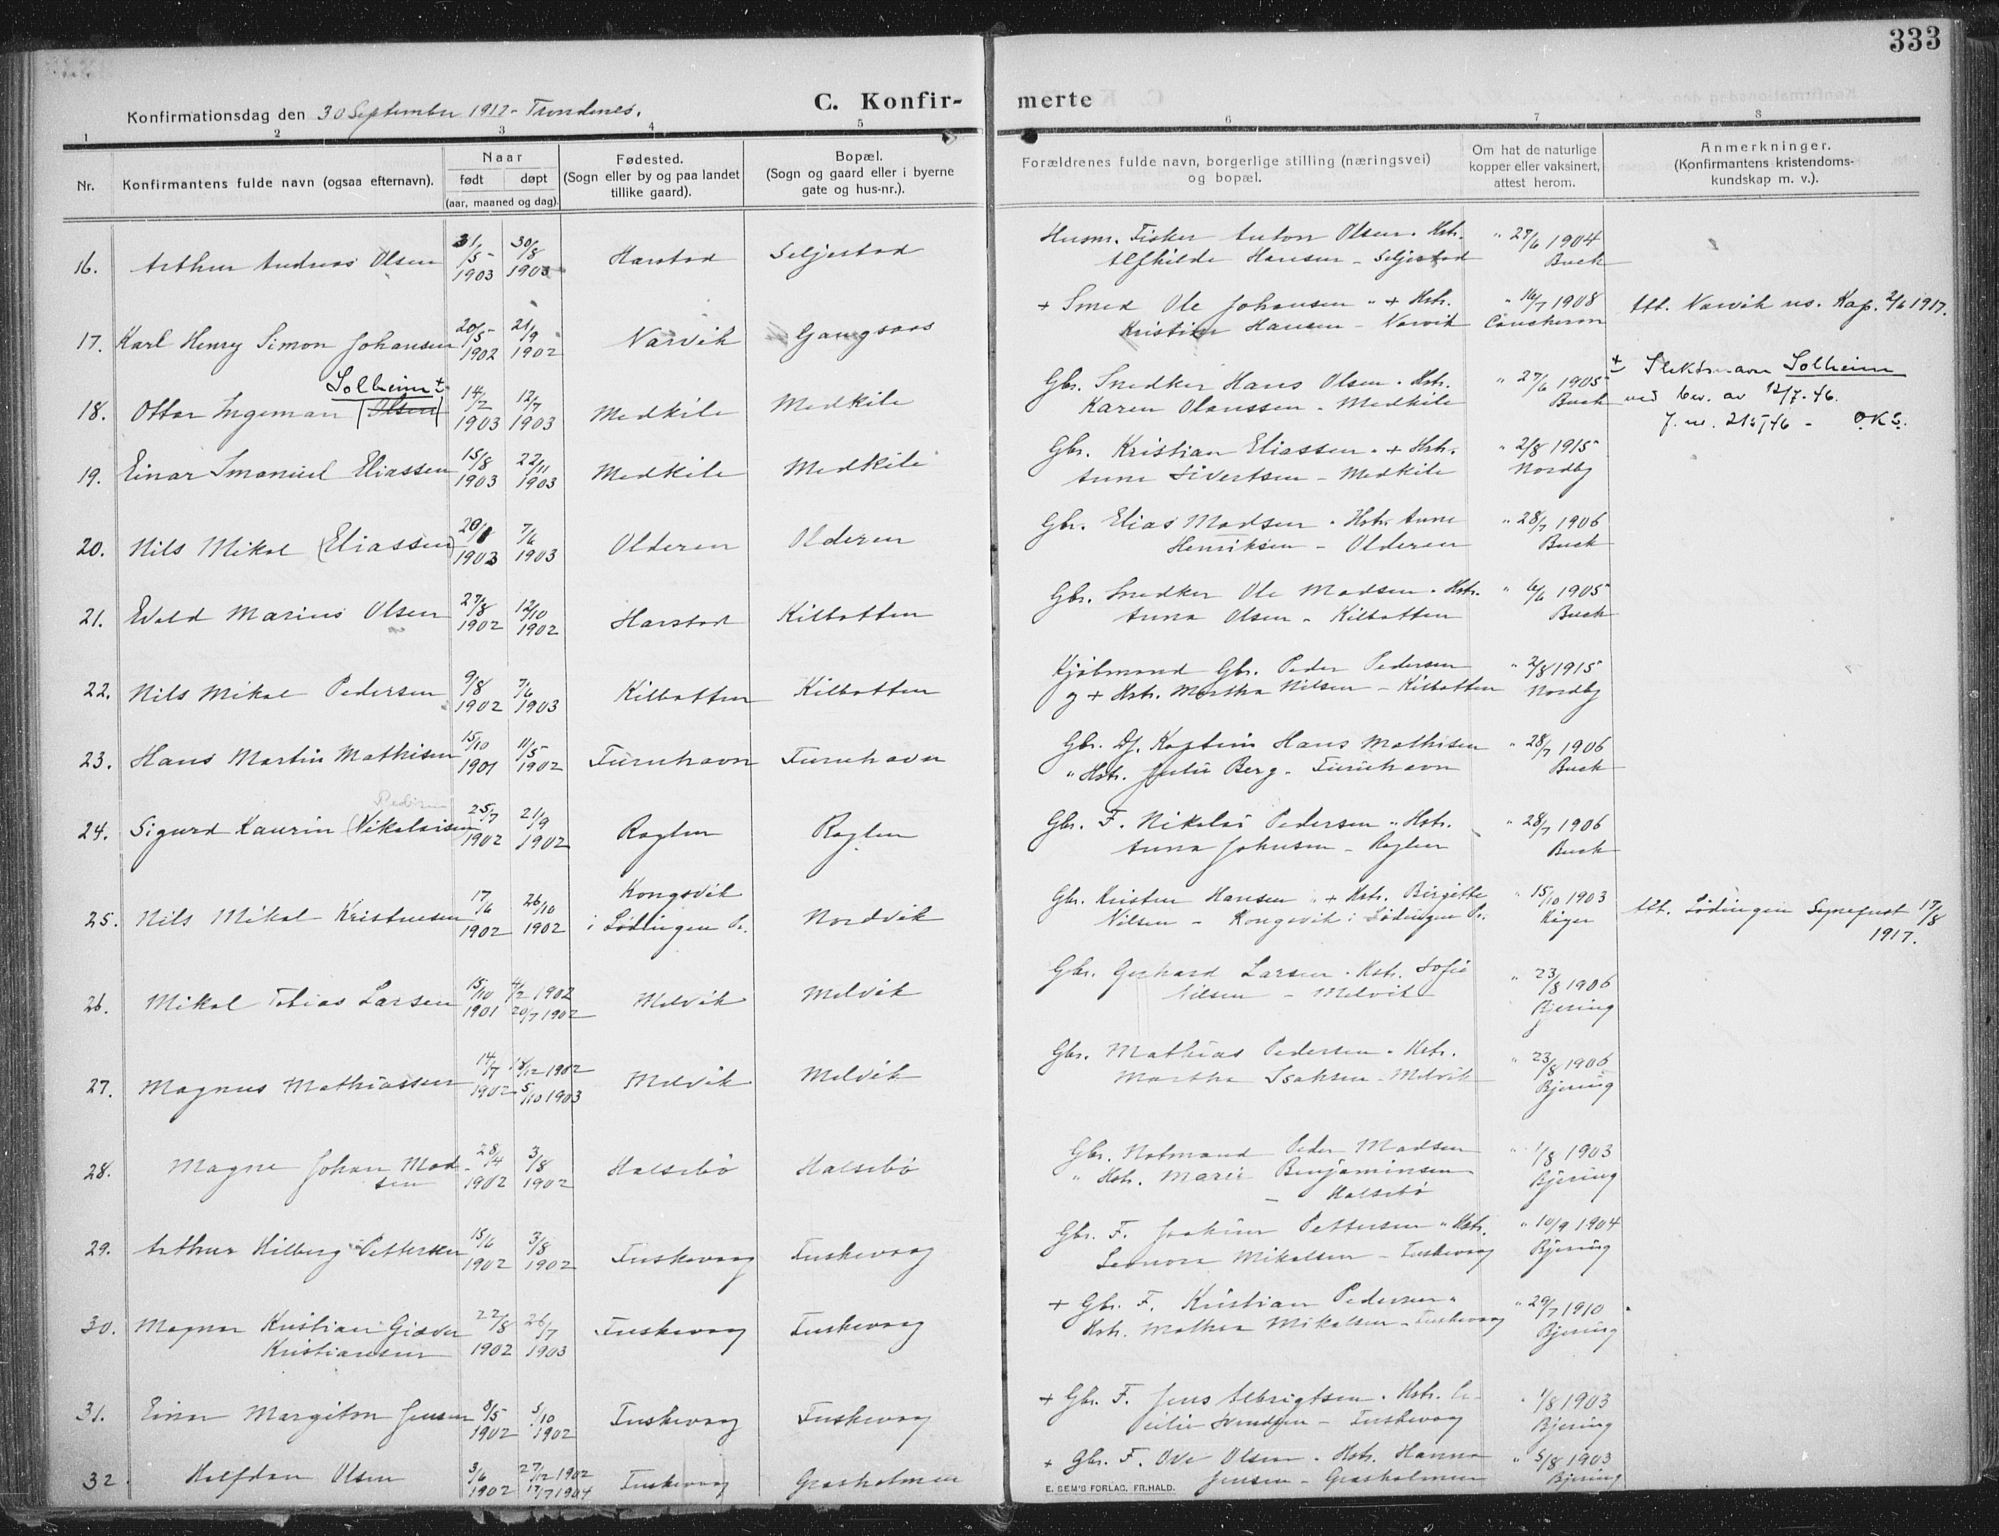 333
Konfirmationsdag den 30 September 1917 - Trondenes.
C. Konfir-
merte
1 2 3 4 5 6 7 8
Nr.
Konfirmantens fulde navn (ogsaa efternavn).
Naar
født døpt
(aar, maaned og dag).
Fødested.
(Sogn eller by og paa landet
tillike gaard).
Bopæl.
(Sogn og gaard eller i byerne
gate og hus-nr.).
Forældrenes fulde navn, borgerlige stilling (næringsvei)
og bopæl.
Om hat de naturlige
kopper eller vaksinert,
attest herom.
Anmerkninger.
(Konfirmantens kristendoms-
kundskap m. v.).
16. Arthur Andreas Olsen 31/5 1903 30/8 1903 Harstad Seljestad Husm. Fisker Anton Olsen. Hstr. " 27/6 1904
Alfhilde Hansen - Seljestad Buck
17. Karl Henry Simon Johansen 20/5 1902 21/9 1902 Narvik Gangsaas + Smed Ole Johansen " + Hstr. " 16/7 1908 Att. Narvik res. Kap. 2/6 1917.
Hansen - Narvik
Solheim +
18. Ottar Ingeman (Olsen) 14/2 1903 12/7 1903 Medkile Medkile Gbr. Snedker Hans Olsen. Hstr. " 27/6 1905 + Slektsnavn Solheim
Karen Olaussen - Medkile Buck ved bev. av 12/7-46.
O.K.S.
19. Einar Imanuel Eliassen 15/8 1903 22/11 1903 Medkile Medkile Gbr. Kristian Eliassen. + Hstr. " 2/8 1915
Anne Sivertsen - Medkile Nordby
20. Nils Mikal (Eliassen) 20/1 1903 7/6 1903 Olderen Olderen Gbr. Elias Madsen. Hstr. Anne " 28/7 1906
Henriksen - Olderen Buck
21. Edvald Marius Olsen 27/8 1902 12/10 1902 Harstad Kilbotten Gbr. Snedker Ole Madsen. Hstr. " 6/6 1905
Anna Olsen - Kilbotten Buck
22. Nils Mikal Pedersen 9/8 1902 7/6 1903 Kilbotten Kilbotten Gbr. Peder Pedersen " 2/8 1915
og + Hstr. Martha Nilsen - Kilbotten Nordby
23. Hans Martin Mathisen 15/10 1901 11/5 1902 Furuhavn Furuhavn Gbr. Hans Mathisen " 28/7 1906
" Hstr. Julie Berg - Furuhavn Buck
24. Sigurd Kaurin (Nikolaisen 25/7 1902 21/9 1902 Roglen Roglen Gbr. F. Nikolai Pedersen " Hstr. " 28/7 1906
Anna Johnsen - Roglen Buck
25. Nils Mikal Kristensen 17/6 1902 26/10 1902 Kongsvik i Lødingen Pr. Nordvik Gbr. Kristen Hansen " + Hstr. Birgitte " 15/10 1903 Att. Lødingen Sognepræst 17/8
Nilsen - Kongsvik i Lødingen Pr. 1917.
26. Mikal Tobias Larsen 15/10 1901 4/2 1902 20/7 1902 Melvik Melvik Gbr. Gerhard Larsen. Hstr. Sofie " 23/8 1906
Nilsen - Melvik Bjering
27. Magnus Mathiassen 14/7 1902 18/12 1902 5/10 1903 Melvik Melvik Gbr. Mathias Pedersen. Hstr. " 23/8 1906
Martha Isaksen - Melvik Bjering
28. Magne Johan Mad- 28/4 1902 3/8 1902 Halsebø Halsebø Gbr. Notmand Peder Madsen " 1/8 1903
sen " Hstr. Marie Benjaminsen Bjering
- Halsebø
29. Arthur Hilberg Pettersen 15/6 1902 3/8 1902 Fuskevaag Fuskevaag Gbr. F. Joakim Pettersen " Hstr. " 10/9 1904
Leonora Mikalsen - Fuskevaag Bjering
30. Magnar Kristian Giæver 22/8 1902 26/7 1903 Fuskevaag Fuskevaag + Gbr. F. Kristian Pedersen " " 29/7 1910
Kristiansen Hstr. Mathea Mikalsen - Fuskevaag Bjering
31. Einar Margiton Jensen 8/5 1902 5/10 1902 Fuskevaag Fuskevaag + Gbr. F. Jens Albrigtsen. Hstr. Ce- " 1/8 1903
cilie Svendsen - Fuskevaag Bjering
32. Halfdan Olsen 3/6 1902 27/12 1902 17/7 1904 Fuskevaag Grasholmen + Gbr. F. Ove Olsen. Hstr. Hanna " 5/8 1903
Jensen - Grasholmen Bjering
E. SEM'S FORLAG, FR.HALD.